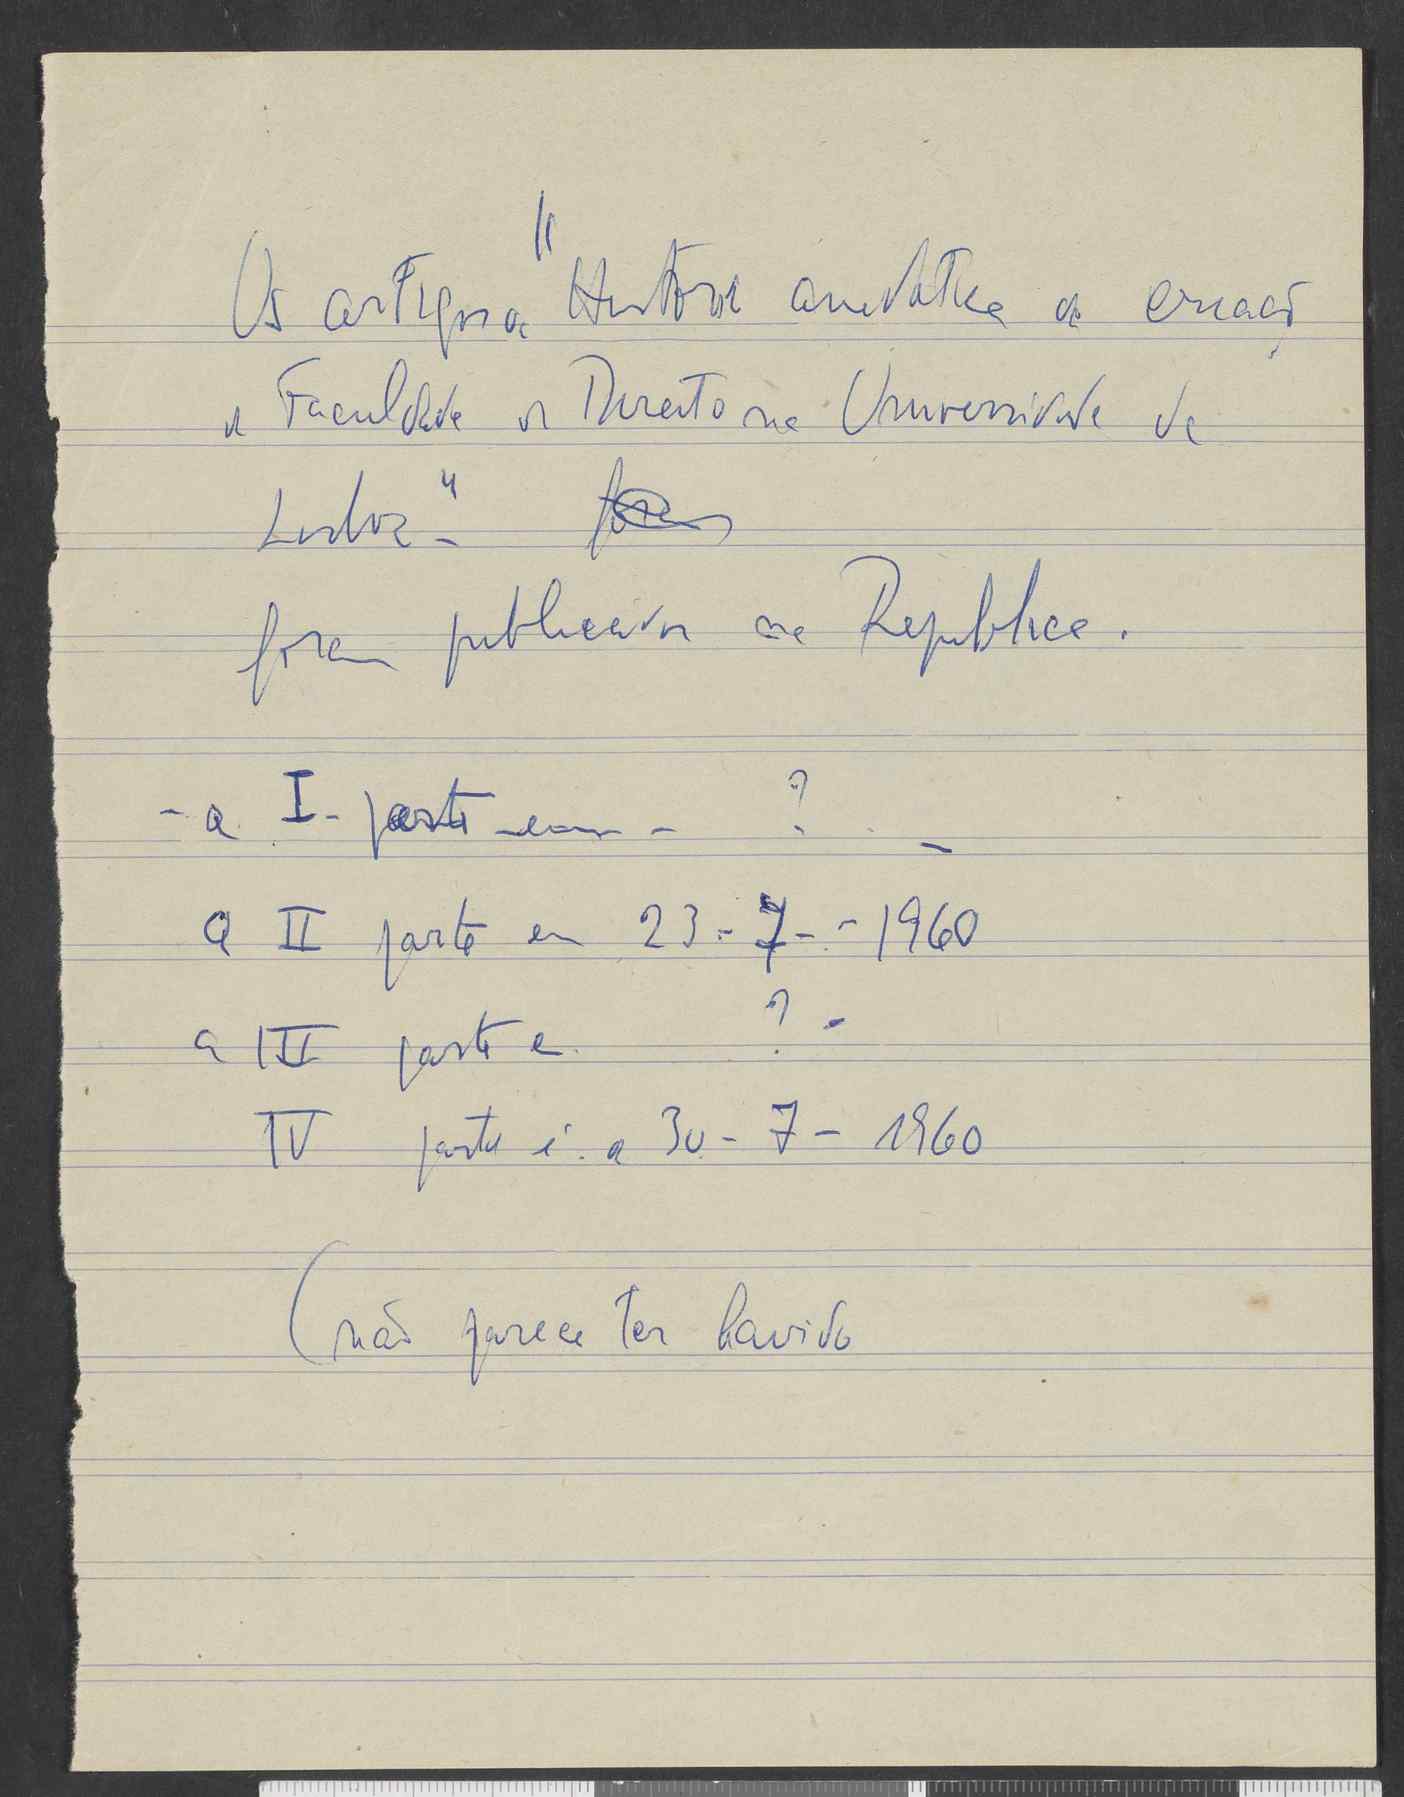 Os artigos da "História anedótica da criação
da Faculdade de Direito na Universidade de
Lisboa"
foram publicados na República.
- a I - parte em - ? -
a II parte em 23 - 7 - - 1960
a III parte e ? -
IV parte é. a 30 - 7 - 1960
(não parece ter havido